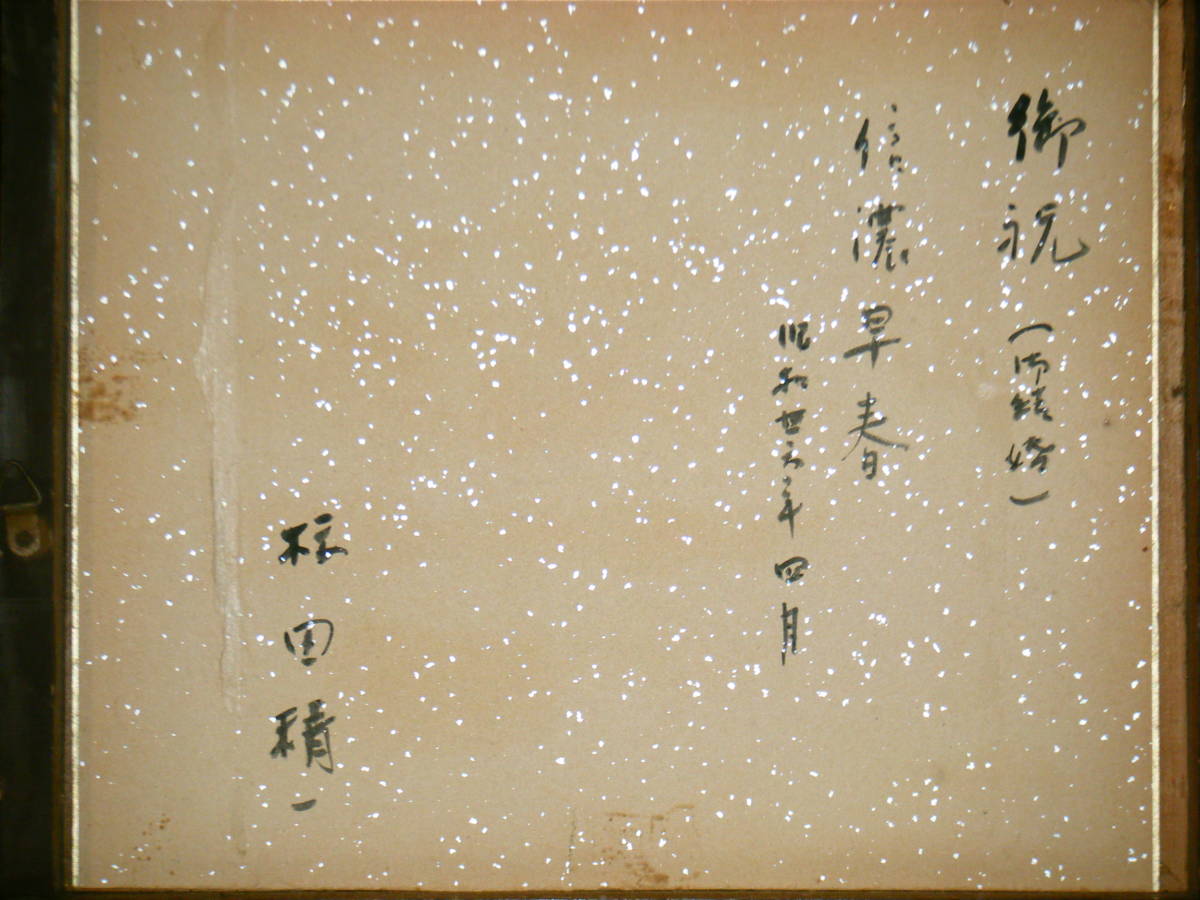 御祝(御結婚)
信濃早春
昭和廿六年四月
田積一